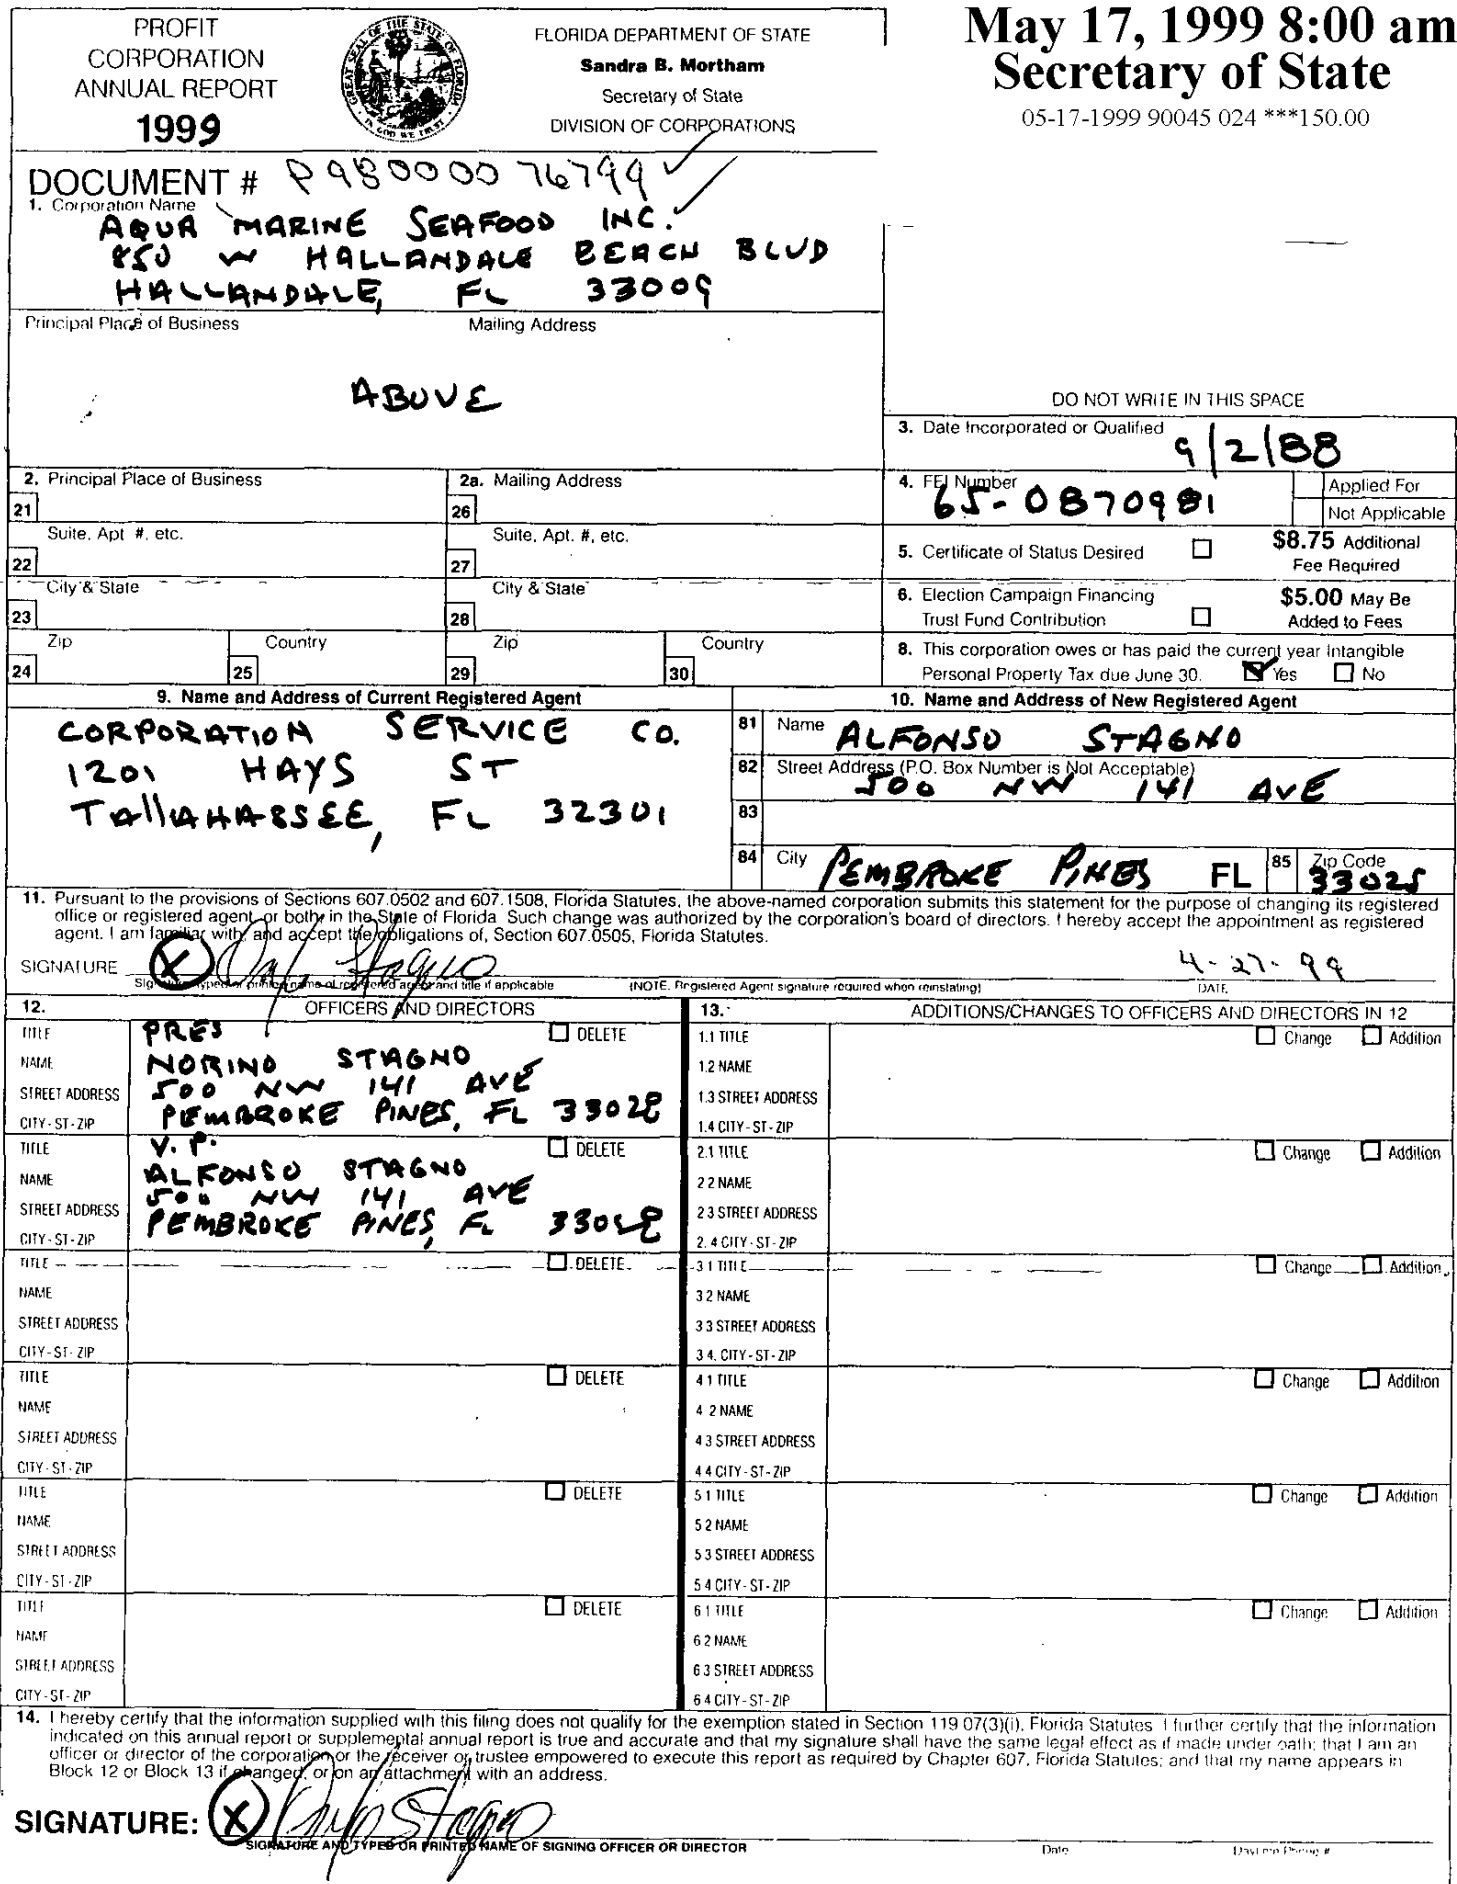 PROFIT
CORPORATION
ANNUAL REPORT
1999
GREAT SEAL OF THE STATE OF FLORIDA
IN GOD WE TRUST
FLORIDA DEPARTMENT OF STATE
Sandra B. Mortham
Secretary of State
DIVISION OF CORPORATIONS
May 17, 1999 8:00 am
Secretary of State
05-17-1999 90045 024 ***150.00
DOCUMENT # P98000076799
1. Corporation Name
AQUA MARINE SEAFOOD INC.
850 W HALLANDALE BEACH BLVD
HALLANDALE, FL 33009
Principal Place of Business Mailing Address
ABOVE
DO NOT WRITE IN THIS SPACE
3. Date Incorporated or Qualified
9/2/88
2. Principal Place of Business
21
2a. Mailing Address
26
4. FEI Number
65-0870981
Applied For
Not Applicable
Suite, Apt #, etc.
22
Suite, Apt. #, etc.
27
5. Certificate of Status Desired
$8.75 Additional
Fee Required
City & State
23
City & State
28
6. Election Campaign Financing
Trust Fund Contribution
$5.00 May Be
Added to Fees
Zip
24
Country
25
Zip
29
Country
30
8. This corporation owes or has paid the current year Intangible
Personal Property Tax due June 30. Yes No
9. Name and Address of Current Registered Agent
CORPORATION SERVICE CO.
1201 HAYS ST
TALLAHASSEE, FL 32301
10. Name and Address of New Registered Agent
81 Name ALFONSO STAGNO
82 Street Address (P.O. Box Number is Not Acceptable)
500 NW 141 AVE
83
84 City PEMBROKE PINES FL 85 Zip Code
33025
11. Pursuant to the provisions of Sections 607.0502 and 607.1508, Florida Statutes, the above-named corporation submits this statement for the purpose of changing its registered
office or registered agent, or both, in the State of Florida. Such change was authorized by the corporation's board of directors. I hereby accept the appointment as registered
agent. I am familiar with, and accept the obligations of, Section 607.0505, Florida Statutes.
SIGNATURE X Stagno 4-27-99
Signature, typed or printed name of registered agent and title if applicable (NOTE. Registered Agent signature required when reinstating) DATE
12. OFFICERS AND DIRECTORS
13. ADDITIONS/CHANGES TO OFFICERS AND DIRECTORS IN 12
TITLE PRES DELETE
NAME NORINO STAGNO
STREET ADDRESS 500 NW 141 AVE
CITY-ST-ZIP PEMBROKE PINES, FL 33028
1.1 TITLE Change Addition
1.2 NAME
1.3 STREET ADDRESS
1.4 CITY-ST-ZIP
TITLE V.P. DELETE
NAME ALFONSO STAGNO
STREET ADDRESS 500 NW 141 AVE
CITY-ST-ZIP PEMBROKE PINES, FL 33028
2.1 TITLE Change Addition
2 2 NAME
2 3 STREET ADDRESS
2. 4 CITY-ST-ZIP
TITLE DELETE
NAME
STREET ADDRESS
CITY-ST-ZIP
3 1 TITLE Change Addition
3 2 NAME
3 3 STREET ADDRESS
3 4. CITY-ST-ZIP
TITLE DELETE
NAME
STREET ADDRESS
CITY-ST-ZIP
4 1 TITLE Change Addition
4 2 NAME
4 3 STREET ADDRESS
4 4 CITY-ST-ZIP
TITLE DELETE
NAME
STREET ADDRESS
CITY-ST-ZIP
5 1 TITLE Change Addition
5 2 NAME
5 3 STREET ADDRESS
5 4 CITY-ST-ZIP
TITLE DELETE
NAME
STREET ADDRESS
CITY-ST-ZIP
6 1 TITLE Change Addition
6 2 NAME
6 3 STREET ADDRESS
6 4 CITY-ST-ZIP
14. I hereby certify that the information supplied with this filing does not qualify for the exemption stated in Section 119 07(3)(i), Florida Statutes I further certify that the information
indicated on this annual report or supplemental annual report is true and accurate and that my signature shall have the same legal effect as if made under oath; that I am an
officer or director of the corporation or the receiver or trustee empowered to execute this report as required by Chapter 607, Florida Statutes; and that my name appears in
Block 12 or Block 13 if changed, or on an attachment with an address.
SIGNATURE: X Stagno
SIGNATURE AND TYPED OR PRINTED NAME OF SIGNING OFFICER OR DIRECTOR Date Daytime Phone #